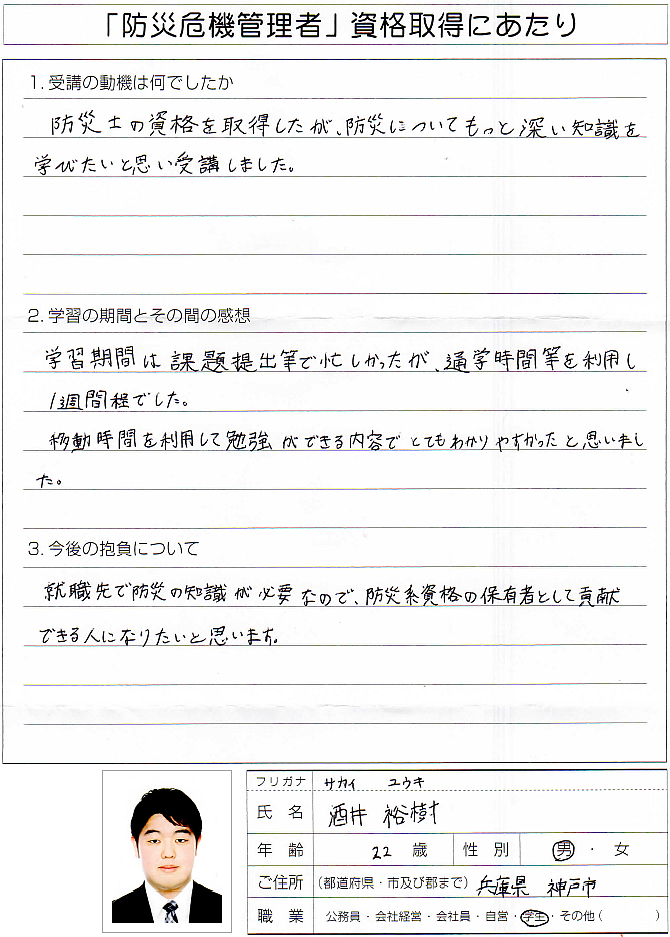 「防災危機管理者」資格取得にあたり
1. 受講の動機は何でしたか
防災士の資格を取得したが、防災についてもっと深い知識を
学びたいと思い受講しました。
2. 学習の期間とその間の感想
学習期間は課題提出等で忙しかったが、通学時間等を利用し
1週間程でした。
移動時間を利用して勉強ができる内容でとてもわかりやすかったと思いまし
た。
3. 今後の抱負について
就職先で防災の知識が必要なので、防災系資格の保有者として貢献
できる人になりたいと思います。
フリガナ サカイ ユウキ
氏 名 酒井 裕樹
年 齢 22 歳 性 別 男 ・ 女
ご住所 (都道府県・市及び郡まで) 兵庫県 神戸市
職 業 公務員・会社経営・会社員・自営・学生・その他 ( )